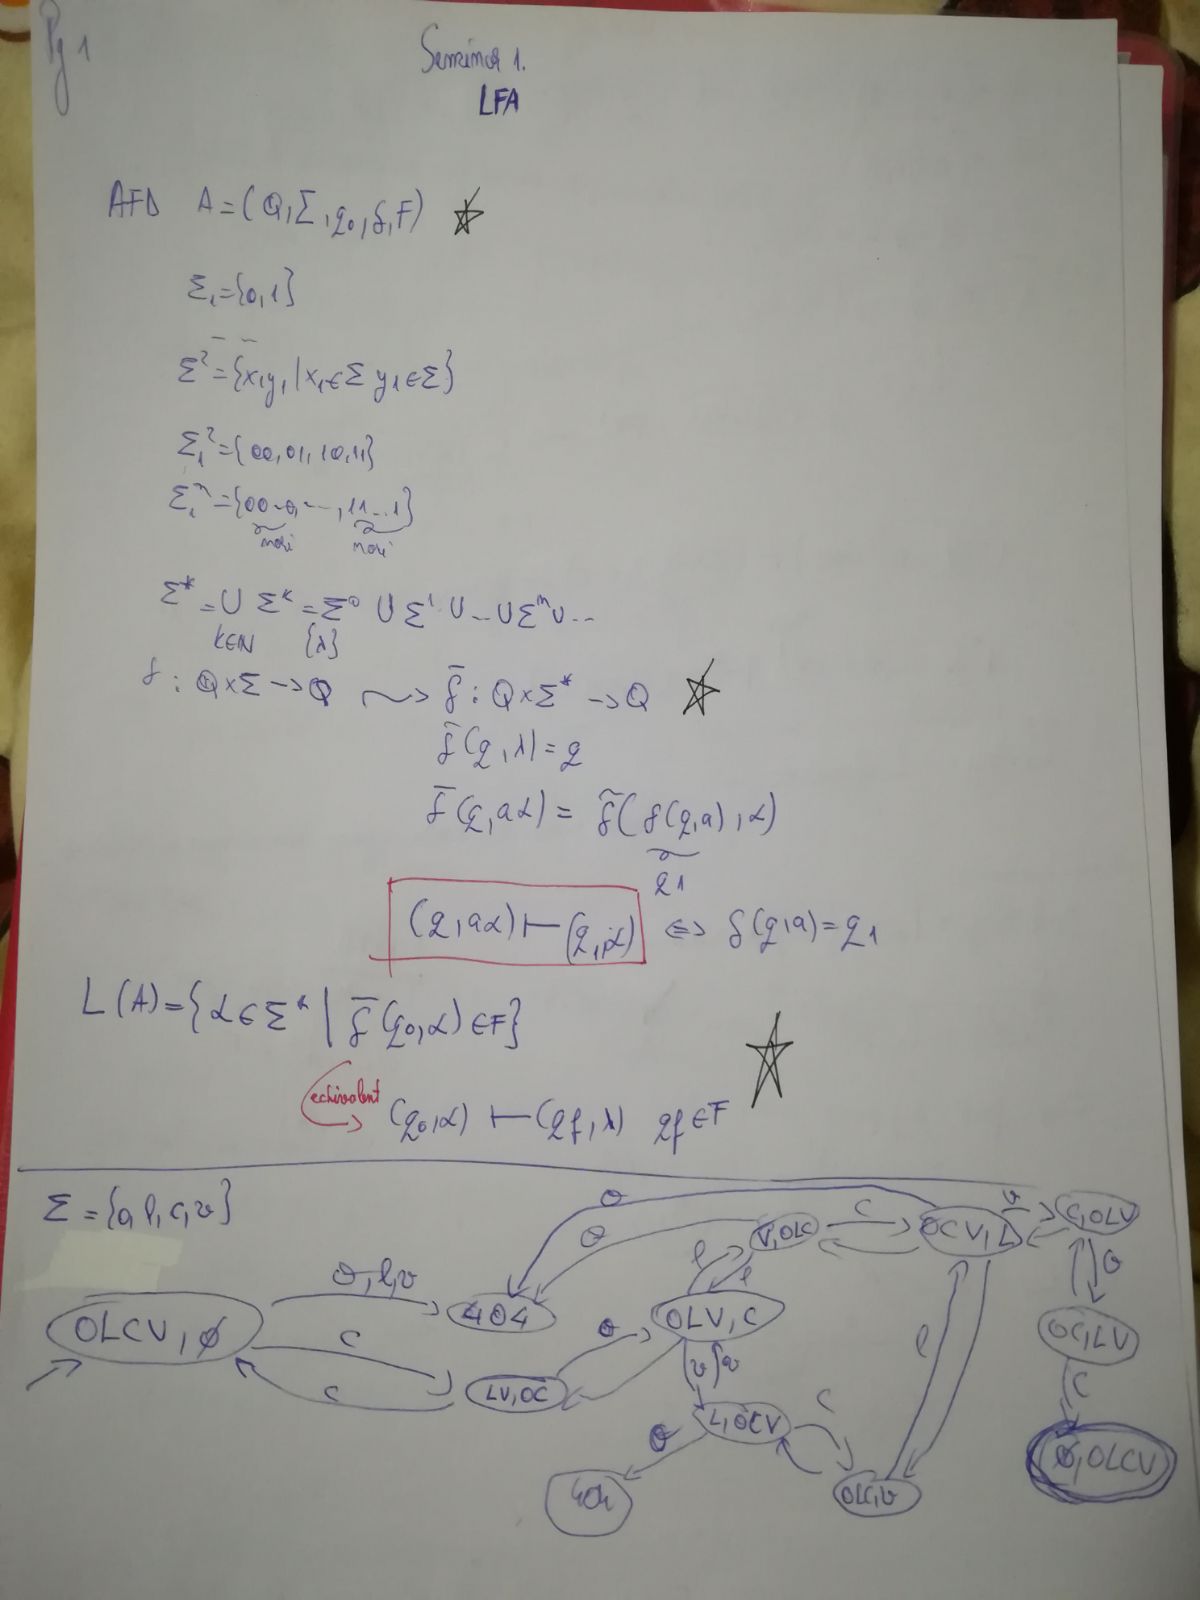 Pg 1
Seminar 1.
LFA
AFD A=(Q,Σ,q₀,δ,F)
Σ₁={0,1}
Σ²={x₁y₁|x₁∈Σ y₁∈Σ}
Σ₁²={00,01,10,11}
Σ₁ⁿ={00..0,...,11...1}
n ori n ori
Σ*=∪ Σᵏ=Σ⁰ ∪ Σ¹ ∪...∪Σⁿ∪...
k∈ℕ {λ}
δ: Q×Σ→Q ⇝ δ̄: Q×Σ*→Q
δ̄(q,λ)=q
δ̄(q,aα)= δ̄(δ(q,a),α)
q1
(q,aα)⊢(q₁,α) ⇔ δ(q,a)=q₁
L(A)={α∈Σ*| δ̄(q₀,α)∈F}
echivalent
(q₀,α) ⊢(qf,λ) qf∈F
Σ={o,l,c,v}
o v C,OLV
V,OLC c OCV,L
o l l o
o,l,v
OLCV,∅ 404 OLV,C OC,LV
c o l
c LV,OC v v c
L,OCV c
o ∅,OLCV
404 OLC,V